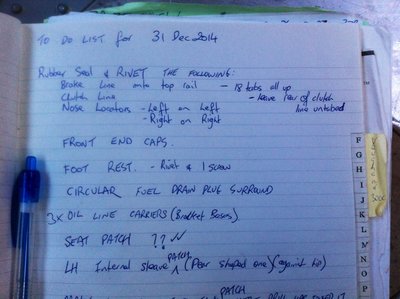 TO DO LIST for 31 Dec 2014
Rubber Seal & RIVET THE FOLLOWING:
Brake Line onto top rail - 18 tabs all up
Clutch Line - leave rear of clutch line untabbed
Nose Locators - Left on Left
- Right on Right
FRONT END CAPS.
FOOT REST. - Rivet & 1 screw
CIRCULAR FUEL DRAIN PLUG SURROUND
3x OIL LINE CARRIERS (Bracket Bases)
SEAT PATCH ??
LH Internal sleeve PATCH (Pear shaped one) (against hip)
PATCH
F
G
H
I
J
K
L
M
N
O
P